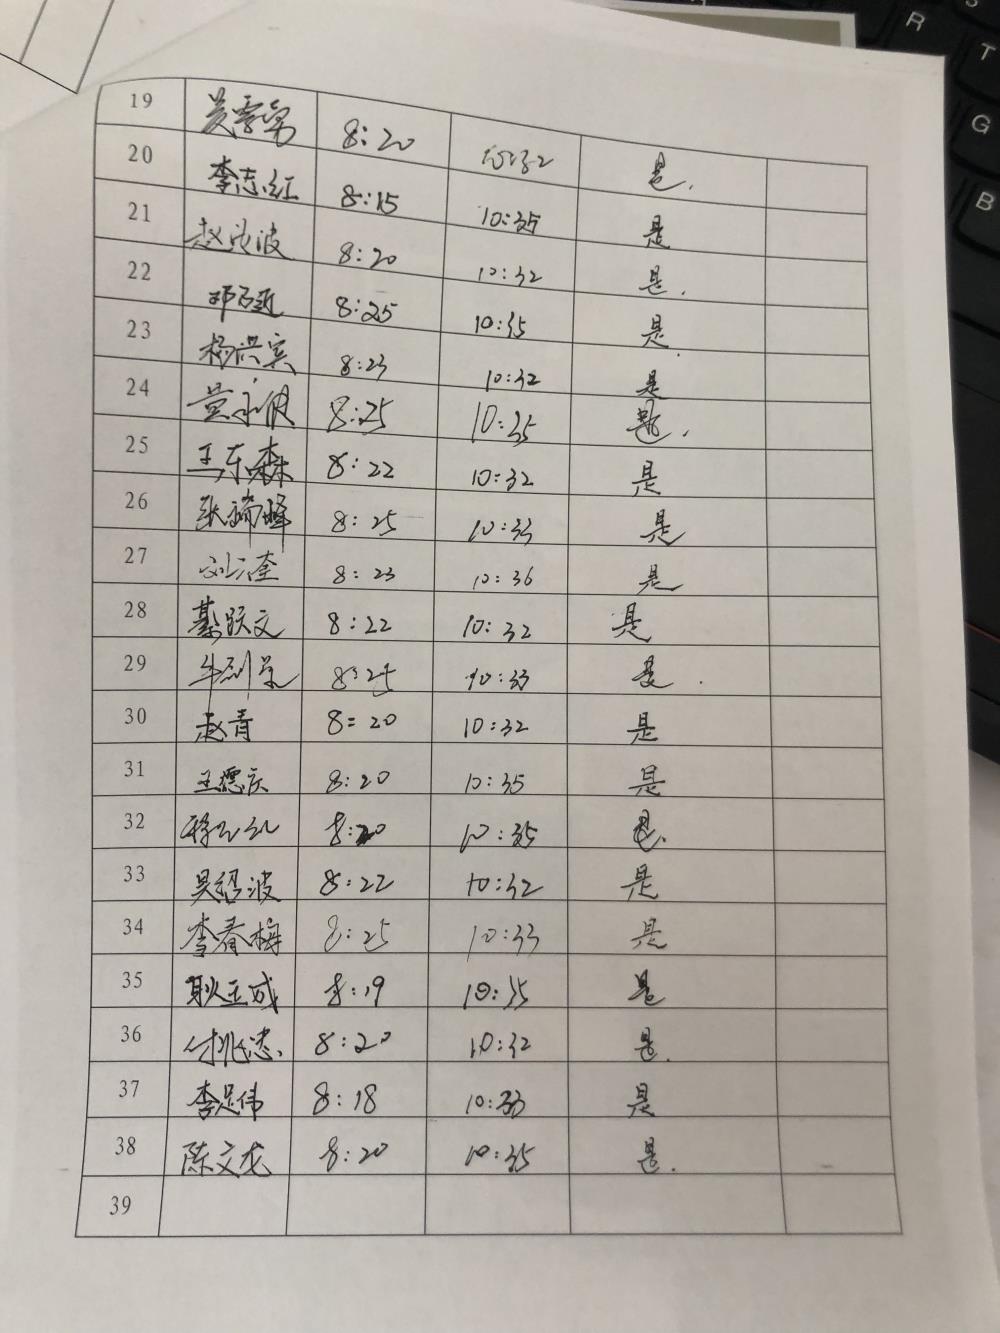 19 8:20 10:32 是.
20 李志红 8:15 10:35 是
21 赵洪波 8:20 10:32 是.
22 8:25 10:35 是.
23 杨洪宾 8:23 10:32 是
24 黄永波 8:25 10:35 是.
25 王东森 8:22 10:32 是
26 张瑞峰 8:25 10:33 是
27 8:23 10:36 是
28 綦跃文 8:22 10:32 是
29 8:25 10:33 是.
30 赵青 8:20 10:32 是
31 王德庆 8:20 10:35 是
32 8:20 10:35 是.
33 吴绍波 8:22 10:32 是
34 李春梅 8:25 10:33 是
35 耿玉成 8:19 10:35 是
36 付兆忠 8:20 10:32 是.
37 李足伟 8:18 10:33 是
38 陈文龙 8:20 10:35 是.
39
R
T
G
B